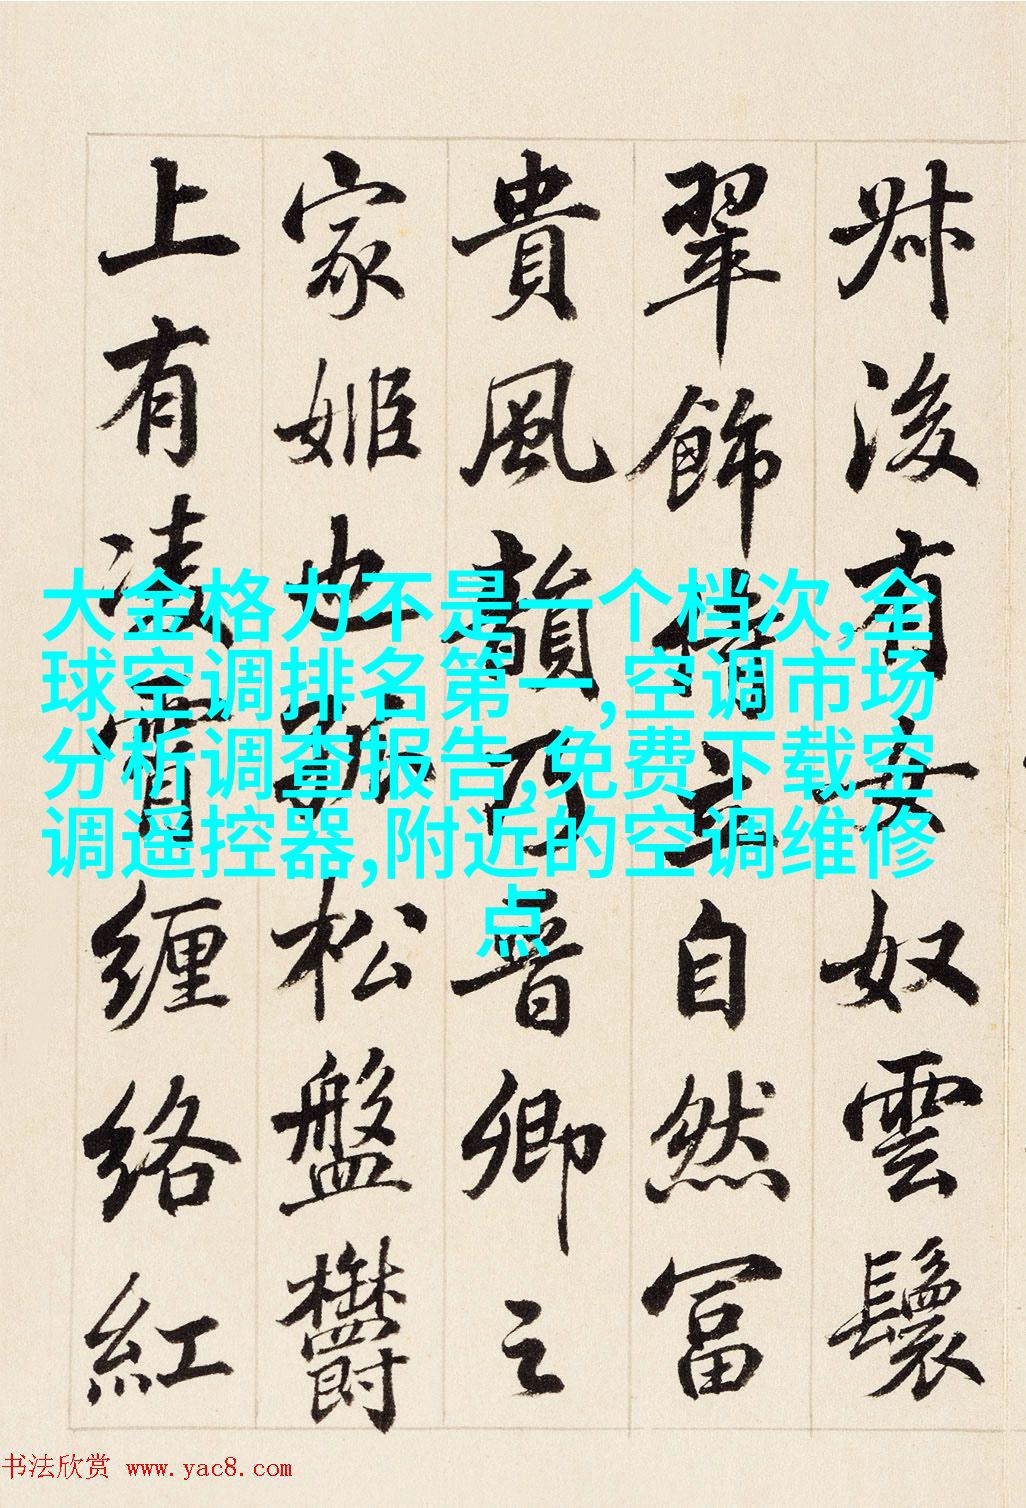 叔後有女奴雲鬟
翠飾立自然富
貴風韻乃晉卿之
家姬也孤松盤鬱
上有凌霄纏絡紅
大金格力不是一个档次,全
球空调排名第一,空调市场
分析调查报告,免费下载空
调遥控器,附近的空调维修
点
书法欣赏 www.yac8.com